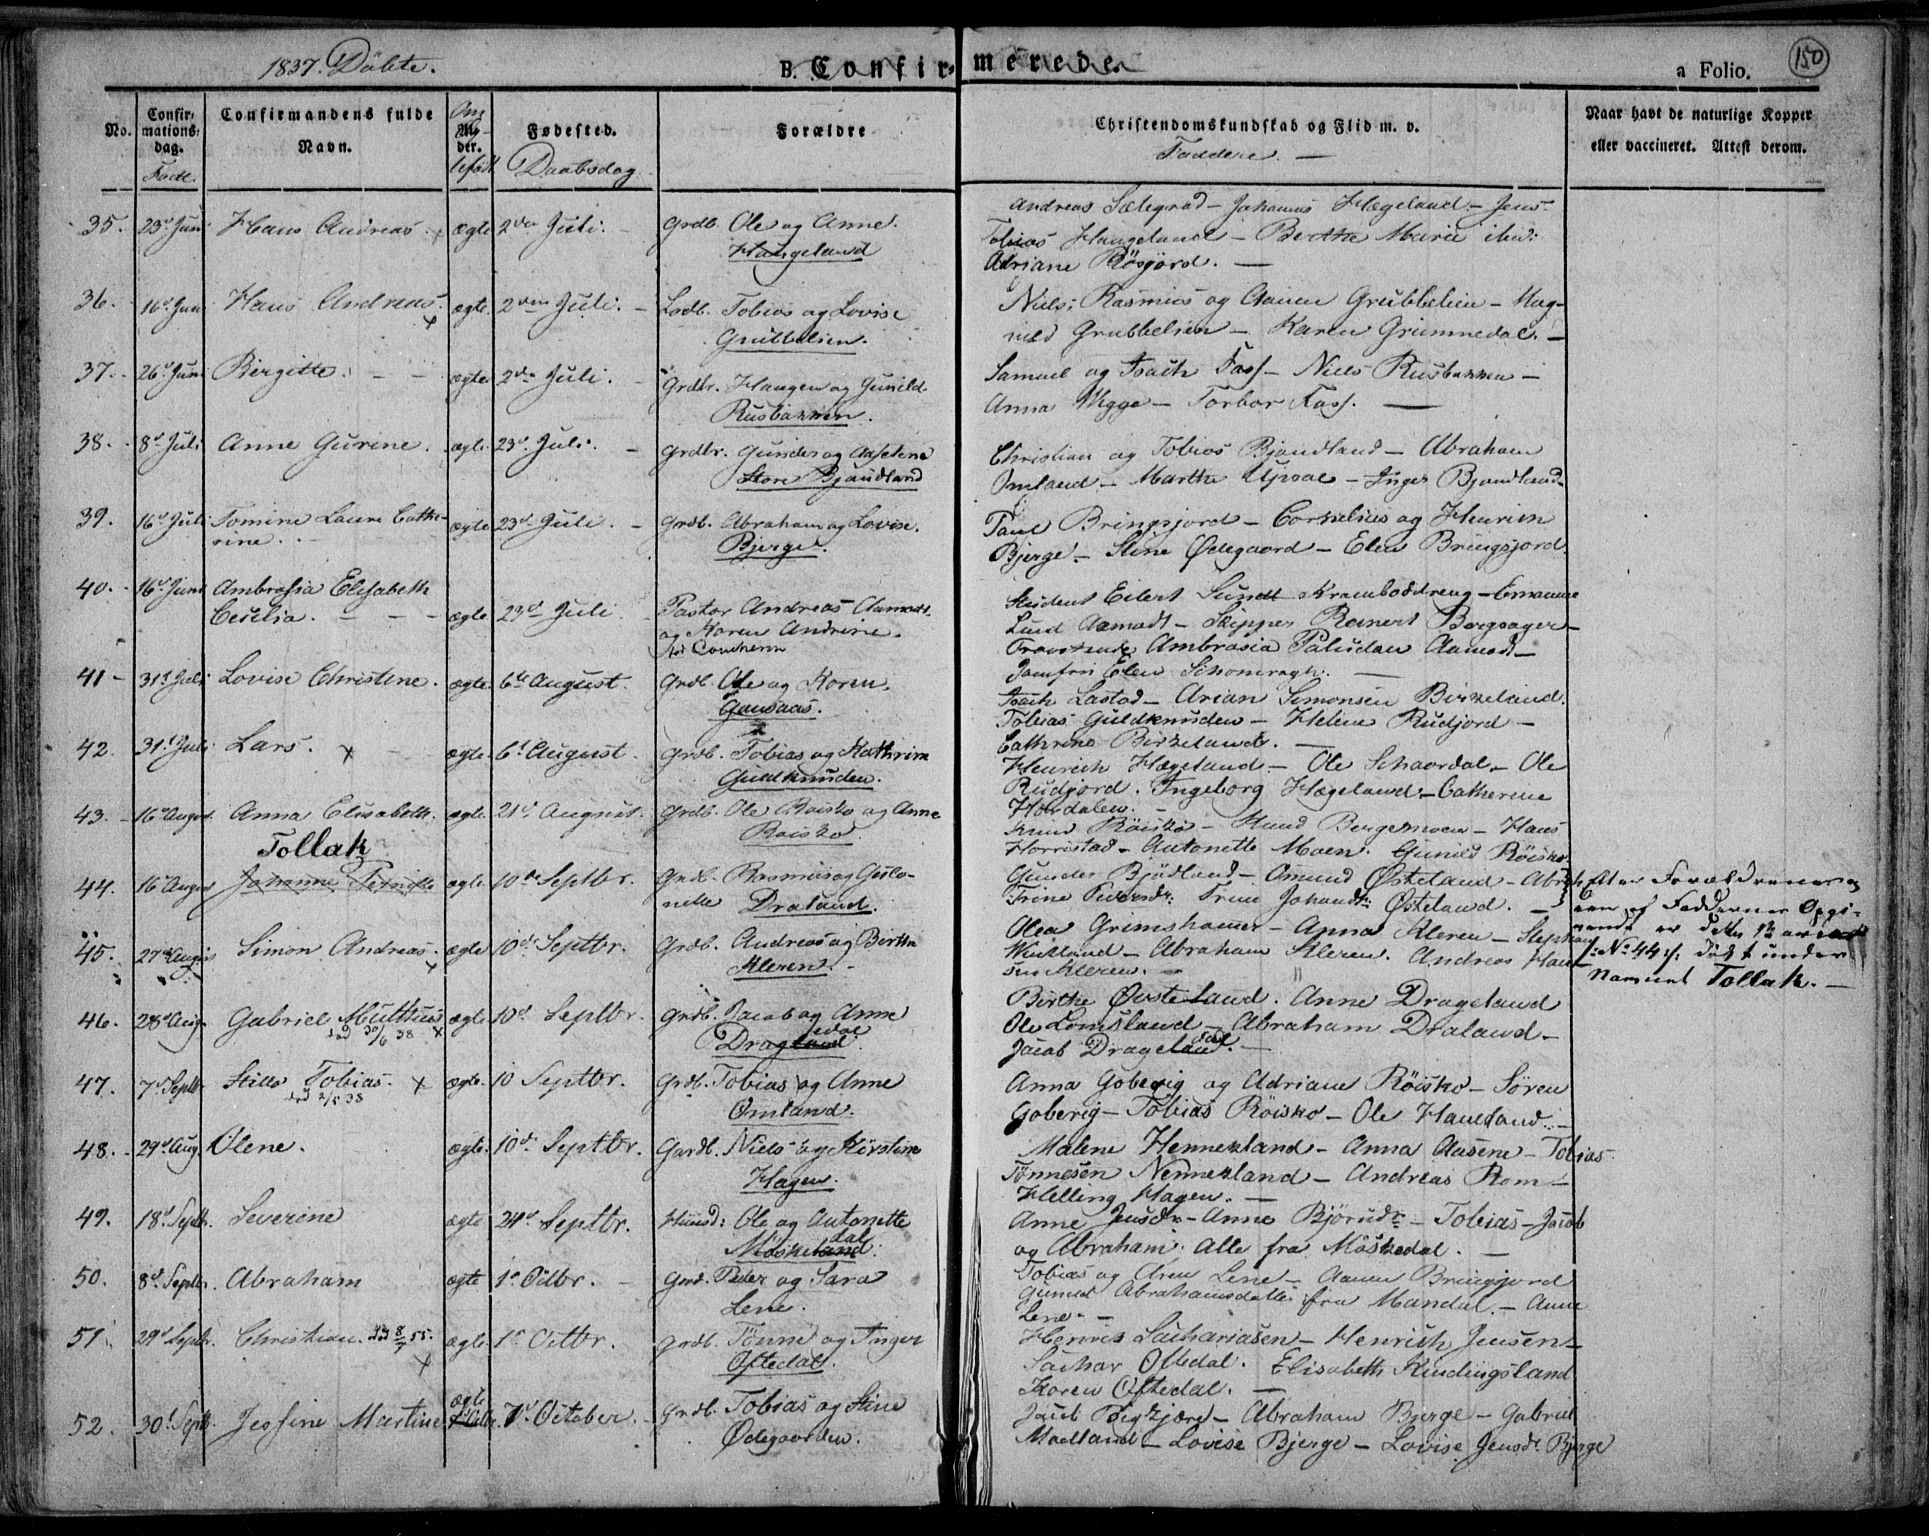 1837. Döbte.
B. Confirmerede.
a Folio. 150
No.
Confirmations:
dag.
Födt.
Confirmandens fulde
Navn.
Om
Al-
der.
Fødested.
Daabsdag
Forældre
Christendomskundskab og Flid m. v.
Faddere. —
Naar havt de naturlige Kopper
eller vaccineret. Attest derom.
35. 23d Juni Hans Andreas. ægte 2den Juli. Grdb. Ole og Anne.
Haugeland
Andreas Sætegrad - Johannes Hægeland - Jens
Tobias Haugeland - Berthe Marie ibid:
Adriane Rösjord. —
36. 16d Juni Hans Andreas. x ægte. 2den Juli. — Lodb. Tobias og Lovise
Grubbelien.
Niels; Rasmus og Aanen Grubbelien - Mag-
nild Grubbelien - Karen Grimmedal. —
37. 26d Juni Birgitte. — — ægte. 2den Juli. — Grdbr. Haagen og Gunild
Rusbakken.
Samuel og Isach Foss - Niels Rusbakken —
Anna Ugge - Torbor Foss. —
38. 8d Juli Anne Gurine. ægte. 23d Juli. — Grdbr. Gunder og Asselene
Store Bjaudland
Christian og Tobias Bjaudland - Abraham
Omland - Marthe Upsal - Inger Bjaudland.
39. 16d Juli Tomine Laure Cathe-
rine. ægte 23d Juli. — Grdb. Abraham og Lovise.
Bjerge.
Paul Bringsjord - Cornelius og Henrich
Bjerge - Stine Ødegaard - Elen Bringsjord.
40. 16d Juni Ambrosia Elisabeth
Cecilia. — — — ægte 23d Juli Pastor Andreas Aamodt
og Karen Andrine.
född Coucheron
Student Eilert Sundt Kramboddreng - Emanuel
Lund Aamodt - Skipper Reinert Borgsager -
Provstinde Ambrosia Paludan Aamodt -
Jomfru Elen
41 - 31d Juli Lovise Christine. ægte. 6te August. Grdb. Ole og Karen.
Gausaas.
Isach Lastad - Arian Simonsen Birkeland.
Tobias Guldknuden - Helene Rudjord -
Cathrine Birkeland. —
42. 31d Juli Lars. x — ægte. 6t August. Grdb. Tobias og Kathrine
Guldknuden.
Henrich Hægeland. — Ole Schaardal - Ole
Rudjord. Ingeborg Hægeland. - Catherine
Hördalen. —
43. 16d August. Anna Elisabeth. ægte. 21d August. Grdb. Ole Roisko og Anne
Roisko
Knud Röisko - Knud Bergemoen - Hans
Horristad - Antonette Moen. Gunild Röisko.
44. 16d August Tollak
Johanne ægte 10de Septbr. Grdb. Rasmus og Gislo-
nette Draland.
Gunder Bjödland - Omund Østeland -
Trine Pedersdr: Trine Johansdr: Østeland. —
Efter Forældrenes og
een af Faddernes Opgi-
vende er dette Barn
(: No 44 :) døbt under
Navnet Tollak. —
45. 27d August Simon Andreas. x ægte 10d Septbr. Grdb. Andreas og Birthe
Kleren. -
Olea Grimshamer - Anna Kleren - Stephan
Abraham Kleren. Andreas Han-
sen Kleren. —
46. 28d Aug. Gabriel Mathias
död 30/6 38 x ægte 10d Septbr. Grdb. Jacob og Anne
Dragland dal.
Birthe Øvsteland. Anne Drageland
Ole Lomsland - Abraham Draland -
Jacob Drageland. dal —
47. 7d Septbr. Stille Tobias. x
död 2/5 38 ægte. 10 Septbr. Grdb. Tobias og Anne
Omland.
Anna Goberig og Adriane Röisko - Søren
Goberig - Tobias Röisko - Ole Hauland. —
48. 29d Aug. Olene. ægte. 10d Septbr. Gardb. Niels og Kirstine
Hagen.
Malene Hennekland - Anna Aasene - Tobias
Tønnesen Nennekland - Andreas Rom -
Helling Hagen. —
49. 18d Septbr. Severine ægte 24d Septbr. Huusd: Ole og Antonette
Möskeland: dal
Anne Jensdr - Anne Björnsdr - Tobias - Jacob
og Abraham: Alle fra Möskedal. —
50. 8d Septbr. Abraham ægte 1d Octbr. — Grdb. Peder og Sara
Lene.
Tobias og Aren Lene - Aanen Bringsjord
Gunild Abrahamsdatter fra Mandal. - Anne
Lene. —
51. 29d Septbr. Christian. död 8/7 55. x ægte. 1d Octbr. Grdb. Tönne og Inger
Oftedal.
Henrik Sachariasen - Henrich Jensen -
Sachar Oftedal. Elisabeth Kindingsland
Karen Oftedal. —
52. 30d Septbr Jessine Martine ægte 7d October. - Grdb. Tobias og Stine
Ødegaarden.
Jacob Bigkjære - Abraham Bjerge - Gabriel
Moeland - Lovise Bjerge - Lovise Jensdr. Bjerge